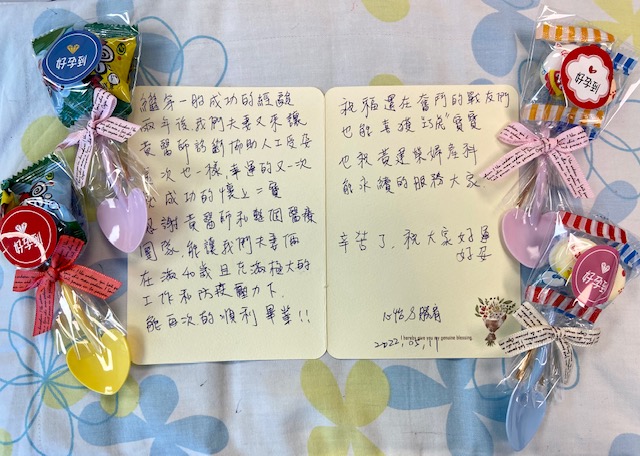 繼第一胎成功的經驗
兩年後,我們夫妻又來讓
黃醫師診斷協助人工受孕
這次也一樣幸運的又一次
成功的懷上二寶
感謝黃醫師和整個醫療
團隊,能讓我們夫妻倆
在滿40歲且充滿極大的
工作和防疫壓力下.
能再次的順利畢業!!
祝福還在奮鬥的戰友們
也能喜獲"琥虎"寶寶
也祝黃建榮婦產科
能永續的服務大家.
辛苦了,祝大家好運
好孕
2022.05.19
I hereby send you my genuine blessing.
好孕到
好孕到
好孕到
好孕到